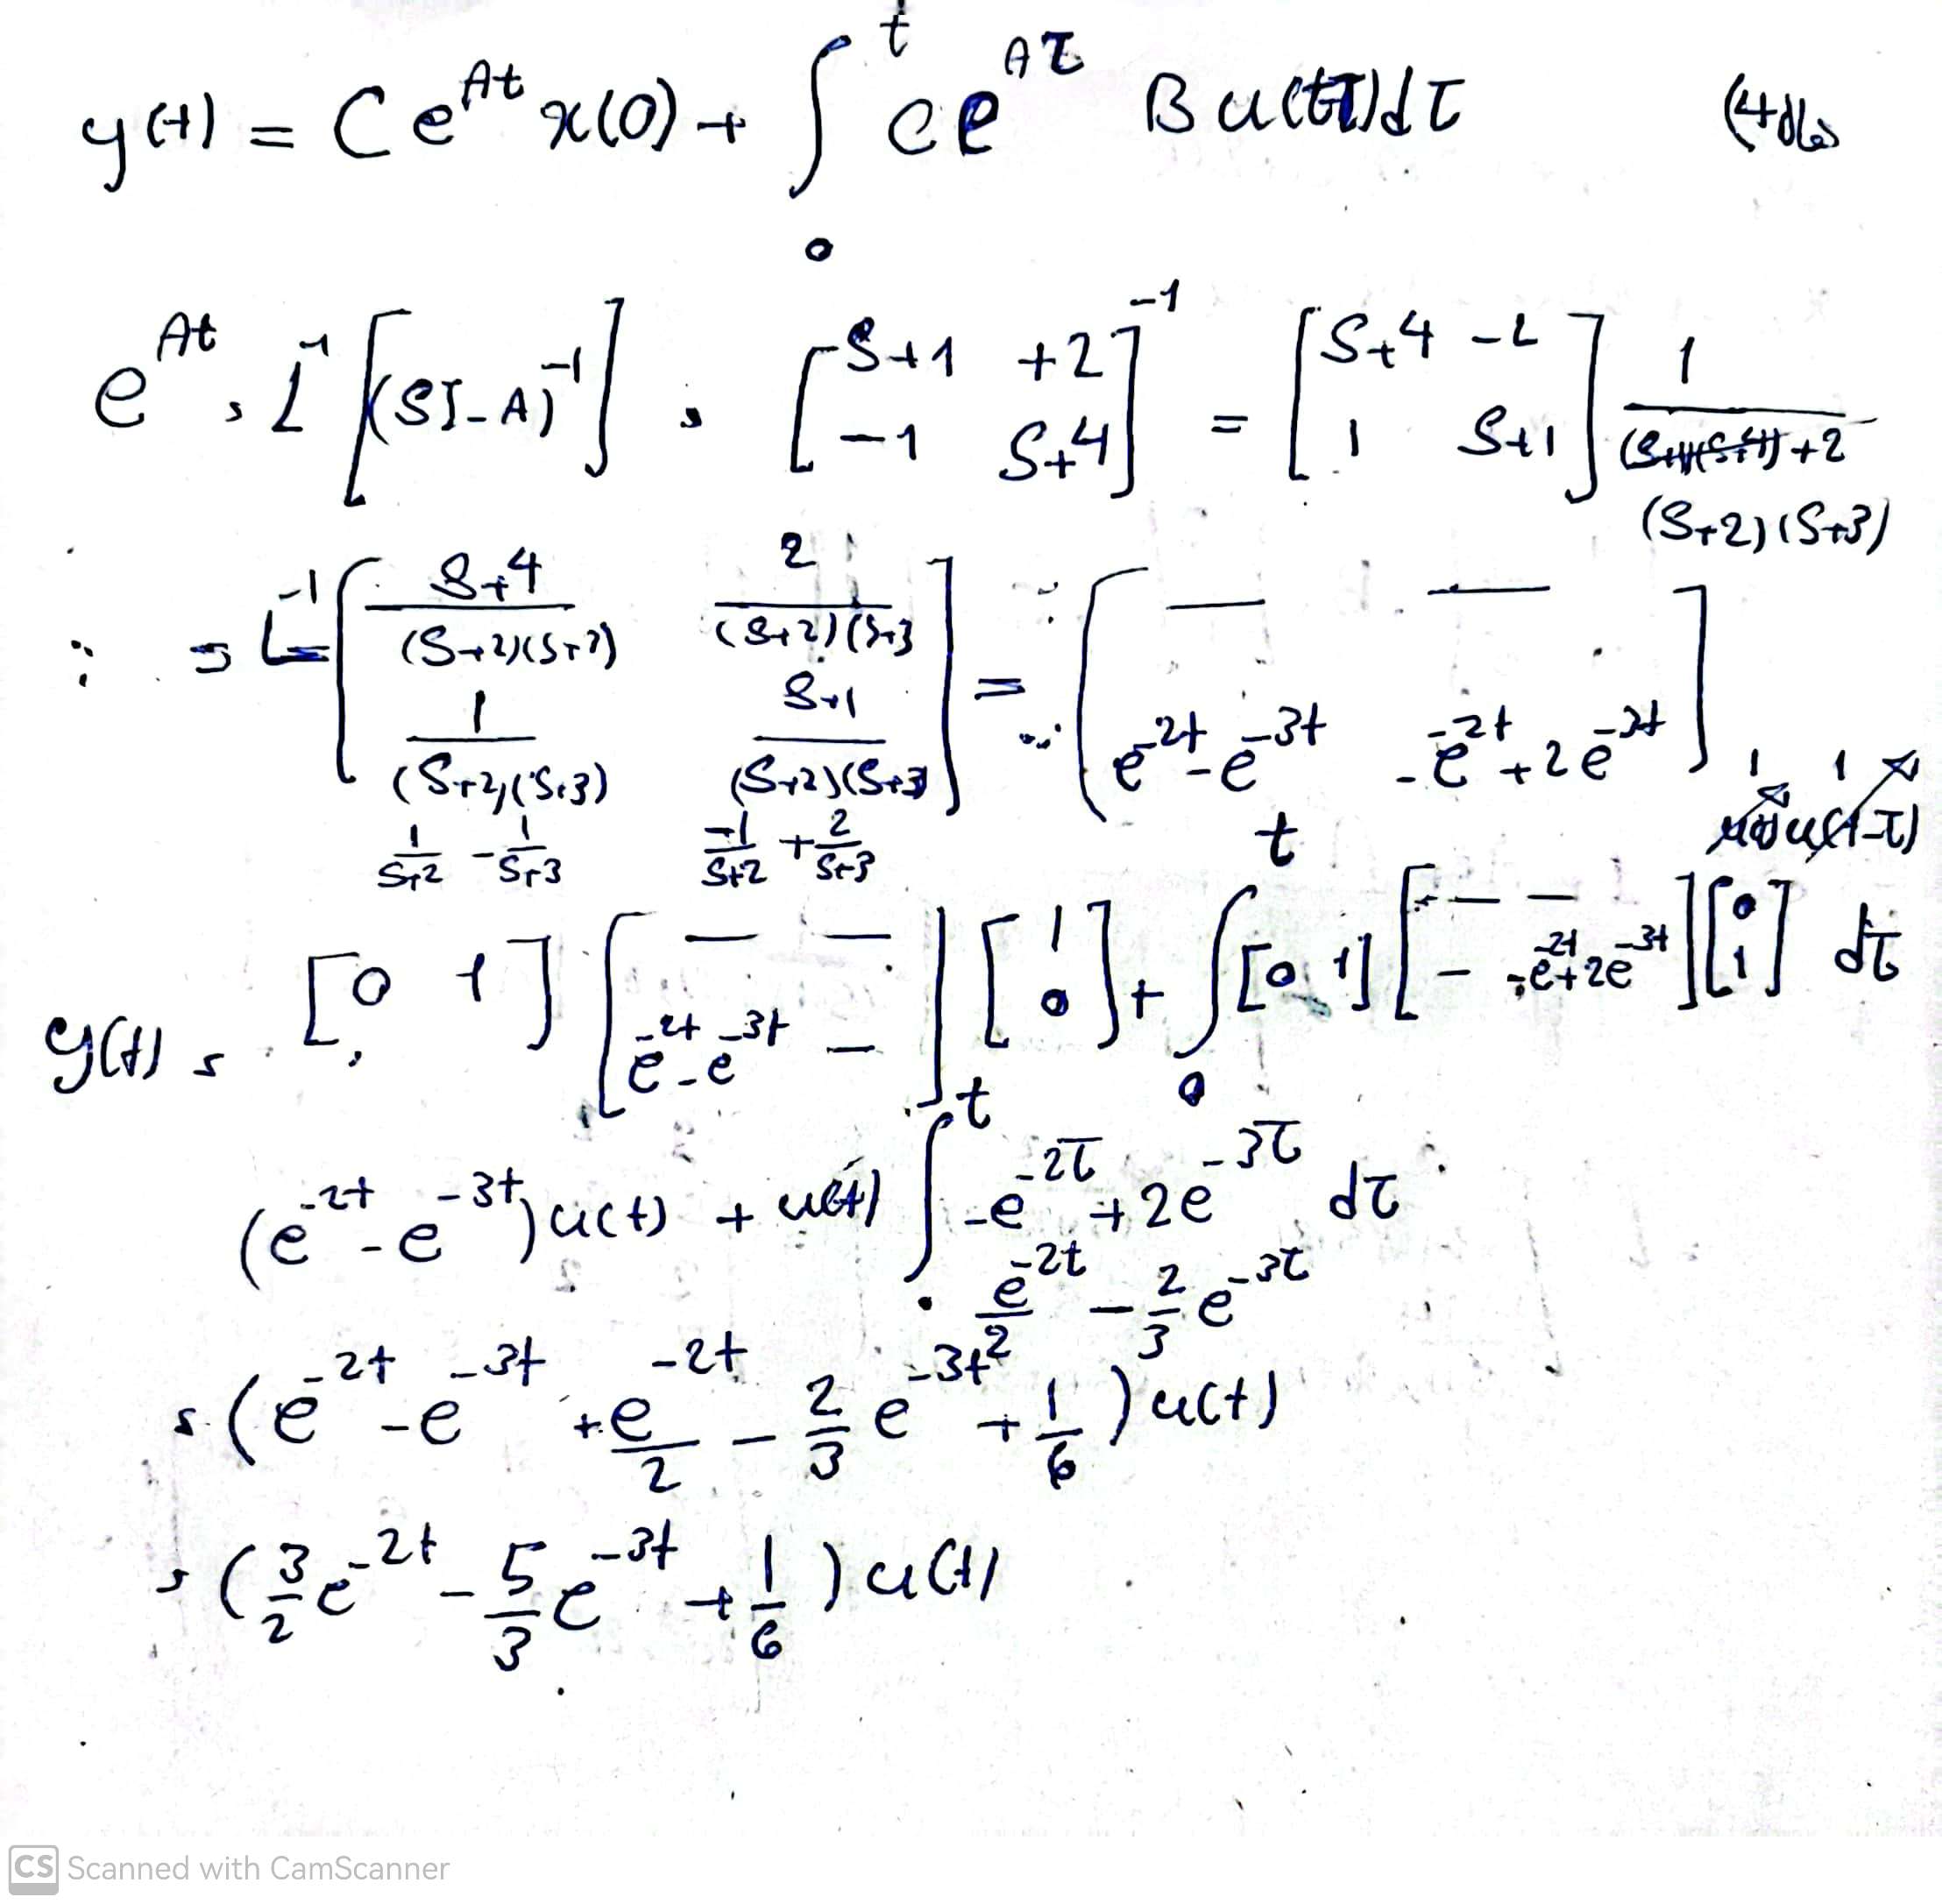 y(t) = C e^{At} x(0) + ∫_0^t C e^{Aτ} B u(t-τ) dτ
e^{At} = L^{-1} [(SI-A)^{-1}] = [S+1 +2; -1 S+4]^{-1} = [S+4 -2; 1 S+1] 1/((S+1)(S+4)+2)
(S+2)(S+3)
= L^{-1} [(S+4)/((S+2)(S+3)) 2/((S+2)(S+3)); 1/((S+2)(S+3)) (S+1)/((S+2)(S+3))] = [— —; e^{-2t} - e^{-3t} -e^{-2t} + 2e^{-3t}]
1/(S+2) - 1/(S+3) -1/(S+2) + 2/(S+3)
1 1
u(t) u(t-τ)
y(t) = [0 1] [— —; e^{-2t} - e^{-3t} —] [1; 0] + ∫_0^t [0 1] [— —; — -e^{-2t} + 2e^{-3t}] [0; 1] dτ
(e^{-2t} - e^{-3t}) u(t) + u(t) ∫_0^t -e^{-2τ} + 2e^{-3τ} dτ
e^{-2t}/2 - 2/3 e^{-3τ}
= (e^{-2t} - e^{-3t} + e^{-2t}/2 - 2/3 e^{-3t} + 1/6) u(t)
= (3/2 e^{-2t} - 5/3 e^{-3t} + 1/6) u(t)
CS Scanned with CamScanner